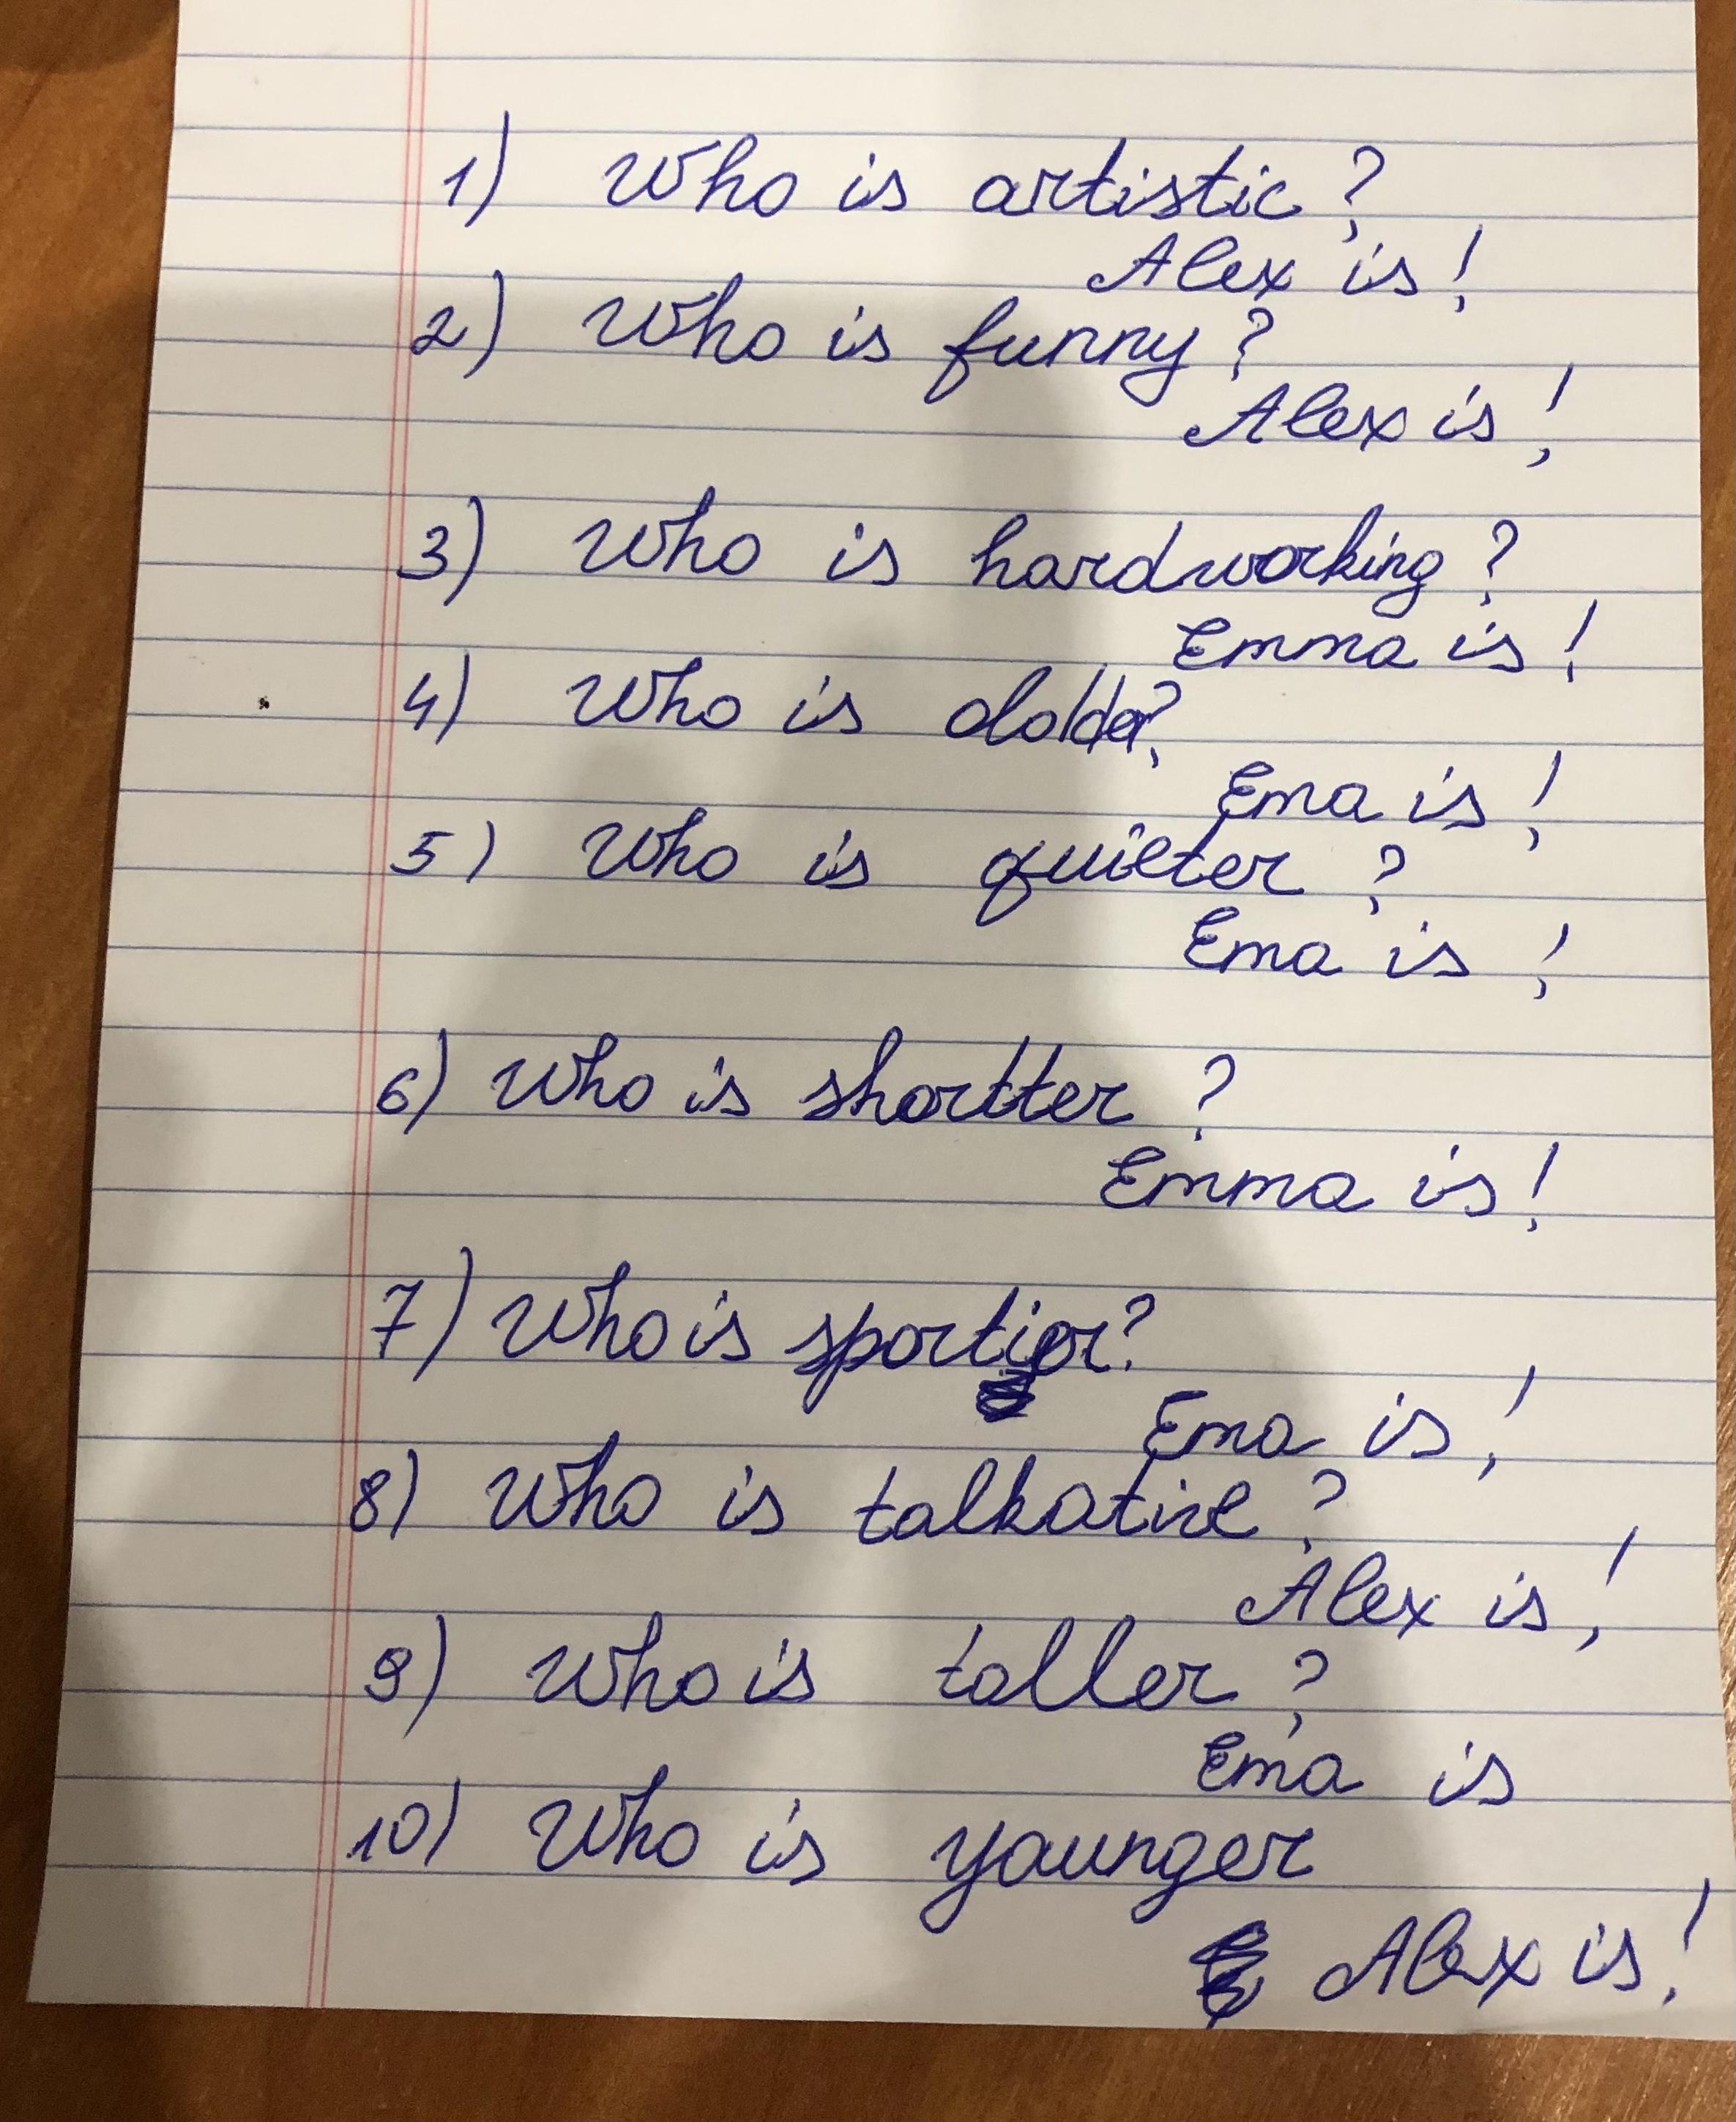 1) Who is artistic?
Alex is!
2) Who is funny?
Alex is!
3) Who is hardworking?
Emma is!
4) Who is dolder?
Ema is!
5) Who is quieter?
Ema is!
6) Who is shortter?
Emma is!
7) Who is sportior?
Ema is!
8) Who is talkative?
Alex is!
9) Who is taller?
Ema is
10) Who is younger
Alex is!